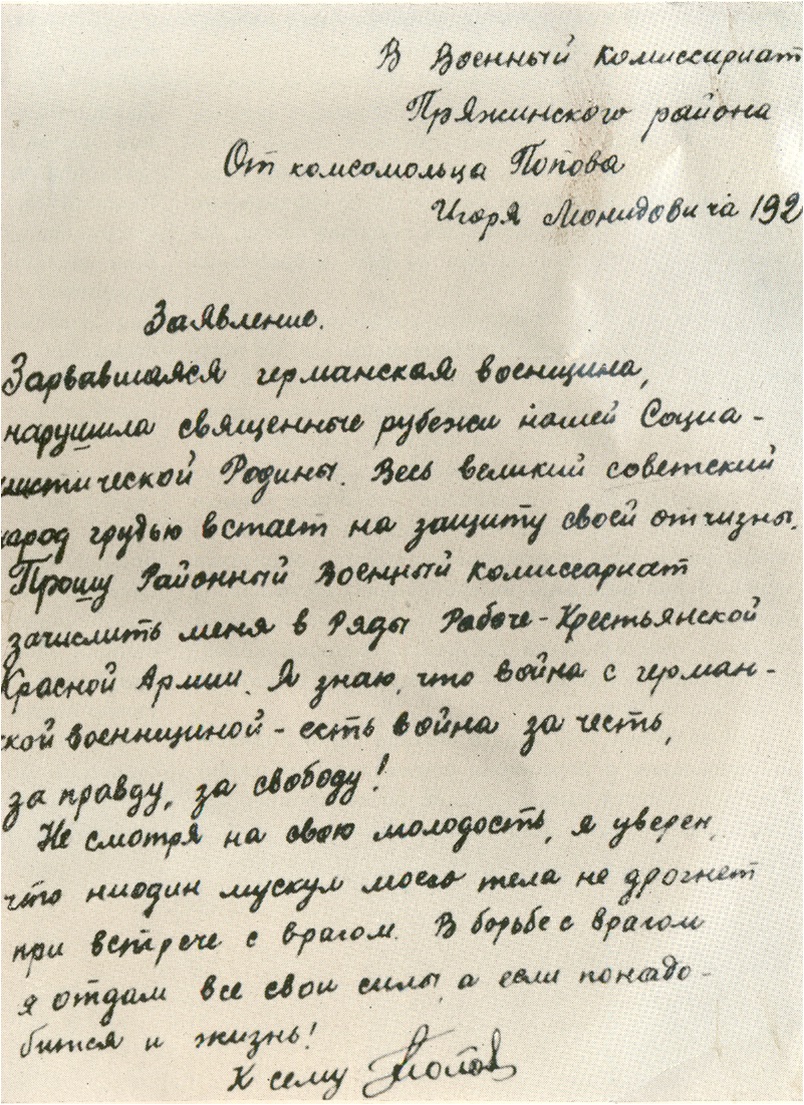 В Военный Комиссариат
Пряжинского района
От комсомольца Попова
Игоря Леонидовича 192
Заявление.
Зарвавшаяся германская военщина,
нарушила священные рубежи нашей Социа-
листической Родины. Весь великий советский
народ грудью встает на защиту своей отчизны.
Прошу Районный Военный Комиссариат
зачислить меня в Ряды Рабоче-Крестьянской
Красной Армии. Я знаю, что война с герман-
ской военнщиной - есть война за честь,
за правду, за свободу!
Не смотря на свою молодость, я уверен,
что ниодин мускул моего тела не дрогнет
при встрече с врагом. В борьбе с врагом
я отдам все свои силы, а если понадо-
бится и жизнь!
К сему Попов